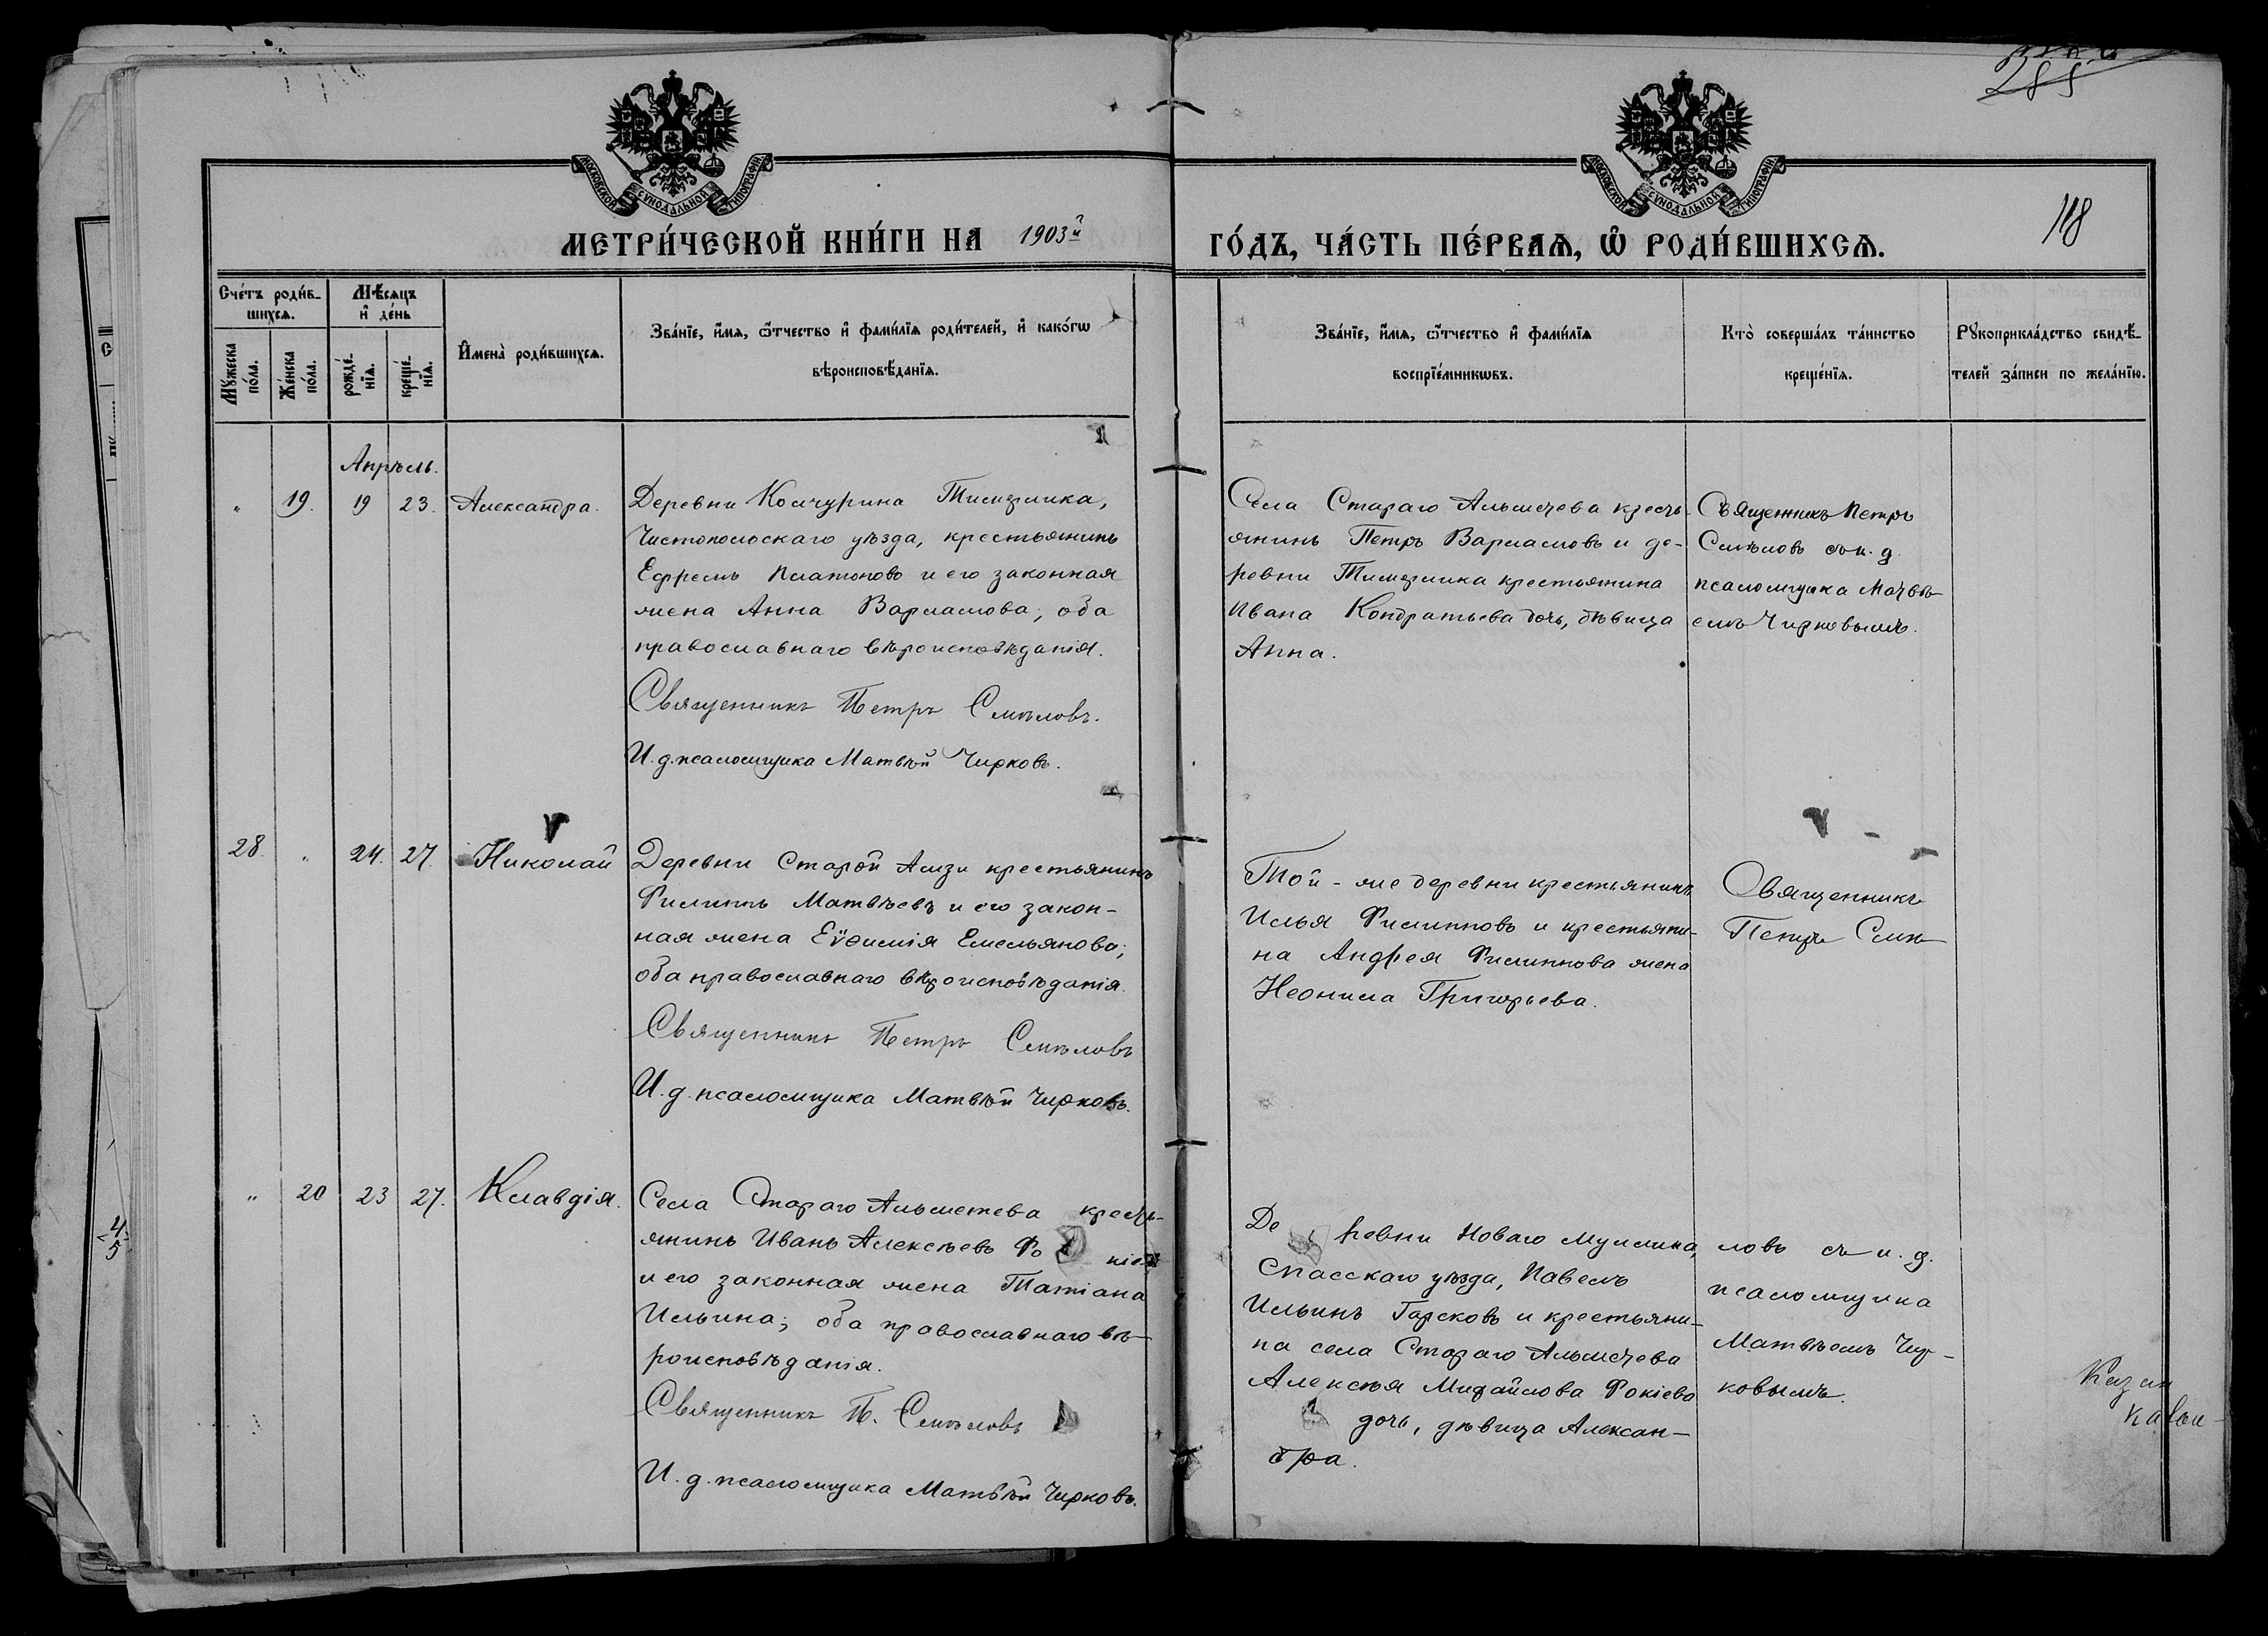 МОСКОВСКОЙ СѴНОДАЛЬНОЙ ТИПОГРАФІИ
МЕТРИ́ЧЕСКОЙ КНИ́ГИ НА 1903й
Сче́тъ роди́в-
шихсѧ.
Мѣ́сяцъ
и҆ де́нь
Мꙋ́жеска
по́ла.
Же́нска
по́ла.
рожде́-
нїѧ.
креще́-
нїѧ.
И҆мена̀ роди́вшихсѧ.
Зва́нїе, и҆́мѧ, ѻ҆́тчество и҆ фами́лїѧ роди́телей, и҆ како́гѡ
вѣроисповѣ́данїѧ.
Апрѣль.
" 19. 19 23. Александра.
Деревни Тимерлика,
Чистопольскаго уѣзда, крестьянинъ
Ефремъ Платоновъ и его законная
жена Анна Варламова; оба
православнаго вѣроисповѣданія.
Священникъ Петръ Смѣловъ.
И. д. псаломщика Матвѣй Чирковъ.
28. " 24. 27. Николай
Деревни Старой Амзи крестьянинъ
Филиппъ Матвѣевъ и его закон-
ная жена Еѵѳимія Емельянова;
оба православнаго вѣроисповѣданія.
Священникъ Петръ Смѣловъ
И. д. псаломщика Матвѣй Чирковъ.
" 20 23 27. Клавдія.
Села Стараго Альметева кресть-
янинъ Иванъ Алексѣевъ Фо
и его законная жена Татіана
Ильина; оба православнаго вѣ-
роисповѣданія.
Священникъ П. Смѣловъ
И. д. псаломщика Матвѣй Чирковъ.
285
МОСКОВСКОЙ СѴНОДАЛЬНОЙ ТИПОГРАФІИ
118
ГО́ДЪ, ЧА́СТЬ ПЕ́РВАѦ, Ѡ҆ РОДИ́ВШИХСѦ.
Зва́нїе, и҆́мѧ, ѻ҆́тчество и҆ фами́лїѧ
воспрїе́мникѡвъ.
Кто̀ соверша́лъ та́инство
креще́нїѧ.
Рꙋкоприкла́дство свидѣ́-
телей за́писи по жела́нїю.
Села Стараго Альметева кресть-
янинъ Петръ Варламовъ и де-
ревни Тимерлика крестьянина
Ивана Кондратьева дочь, дѣвица
Анна.
Священникъ Петръ
Смѣловъ съ и. д.
псаломщика Матвѣ-
емъ Чирковымъ.
Той-же деревни крестьянинъ
Илья Филипповъ и крестьяни-
на Андрея Филиппова жена
Неонила Григорьева.
Священникъ
Петръ Смѣ-
Деревни Новаго Муллина,
Спасскаго уѣзда, Павелъ
Ильинъ Горсковъ и крестьяни-
на села Стараго Альметева
Алексѣя Михайлова Фокіева
дочь, дѣвица Алексан-
дра.
ловъ съ и. д.
псаломщика
Матвѣемъ Чир-
ковымъ.